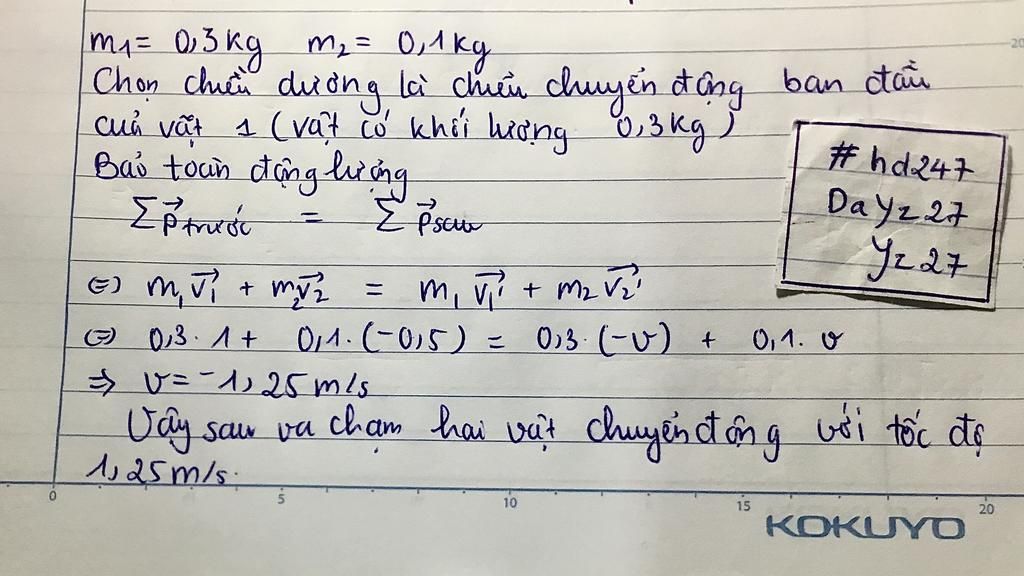 m1 = 0,3 kg m2 = 0,1 kg
Chọn chiều dương là chiều chuyển động ban đầu
của vật 1 (vật có khối lượng 0,3 kg)
Bảo toàn động lượng
∑p⃗trước = ∑p⃗sau
⇔ m1v⃗1 + m2v⃗2 = m1v⃗1' + m2v⃗2'
⇔ 0,3. 1 + 0,1. (-0,5) = 0,3. (-v) + 0,1. v
⇒ v = -1,25 m/s
Vậy sau va chạm hai vật chuyển động với tốc độ
1,25 m/s.
#hd247
Dayz27
Yz27
0 5 10 15 20
KOKUYO
20